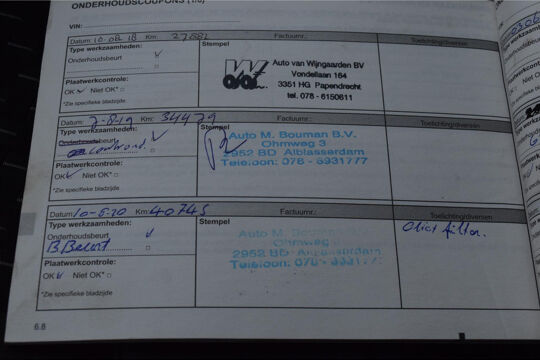 ONDERHOUDSCOUPONS
VIN:
Datum: 10-08-18 Km: 27882
Factuurnr.:
Toelichting/diversen
Type werkzaamheden:
Stempel
Onderhoudsbeurt
Auto van Wijngaarden BV
Vondellaan 164
3351 HG Papendrecht
tel. 078 - 6150611
Plaatwerkcontrole:
OK Niet OK*
*Zie specifieke bladzijde
Datum: 7-8-19 Km: 34479
Factuurnr.:
Toelichting/diversen
Type werkzaamheden:
Stempel
Onderhoudsbeurt
Auto M. Bouman B.V.
Ohmweg 3
2952 BD Alblasserdam
Telefoon: 078 - 6931777
Plaatwerkcontrole:
OK Niet OK*
*Zie specifieke bladzijde
Datum: 10-6-20 Km: 40745
Factuurnr.:
Toelichting/diversen
Type werkzaamheden:
Stempel
Onderhoudsbeurt
B. Beurt
Auto M. Bouman
Ohmweg
2952 BD Alblasserdam
Telefoon: 078
Plaatwerkcontrole:
OK Niet OK*
*Zie specifieke bladzijde
filter.
6.8